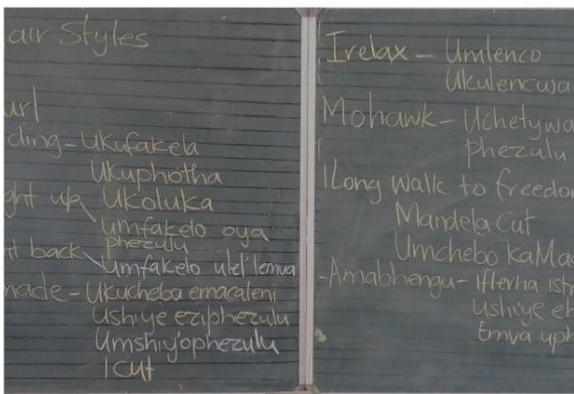 air Styles
url
ding - Ukufakela
Ukuphotha
ght up Ukoluka
umfakelo oya
phezulu
ht back umfakelo utel'lemva
made - Ukucheba emacaleni
Ushiye eziphezulu
Umshiy'ophezulu
ICut
Irelax - Umlenco
Ukulencwa
Mohawk - Uchetywa
phezulu
Long Walk to freedom
Mandela Cut
Umchebo kaMa
- Amabhengu - Iflerha istr
Ushiye eh
Emva uph